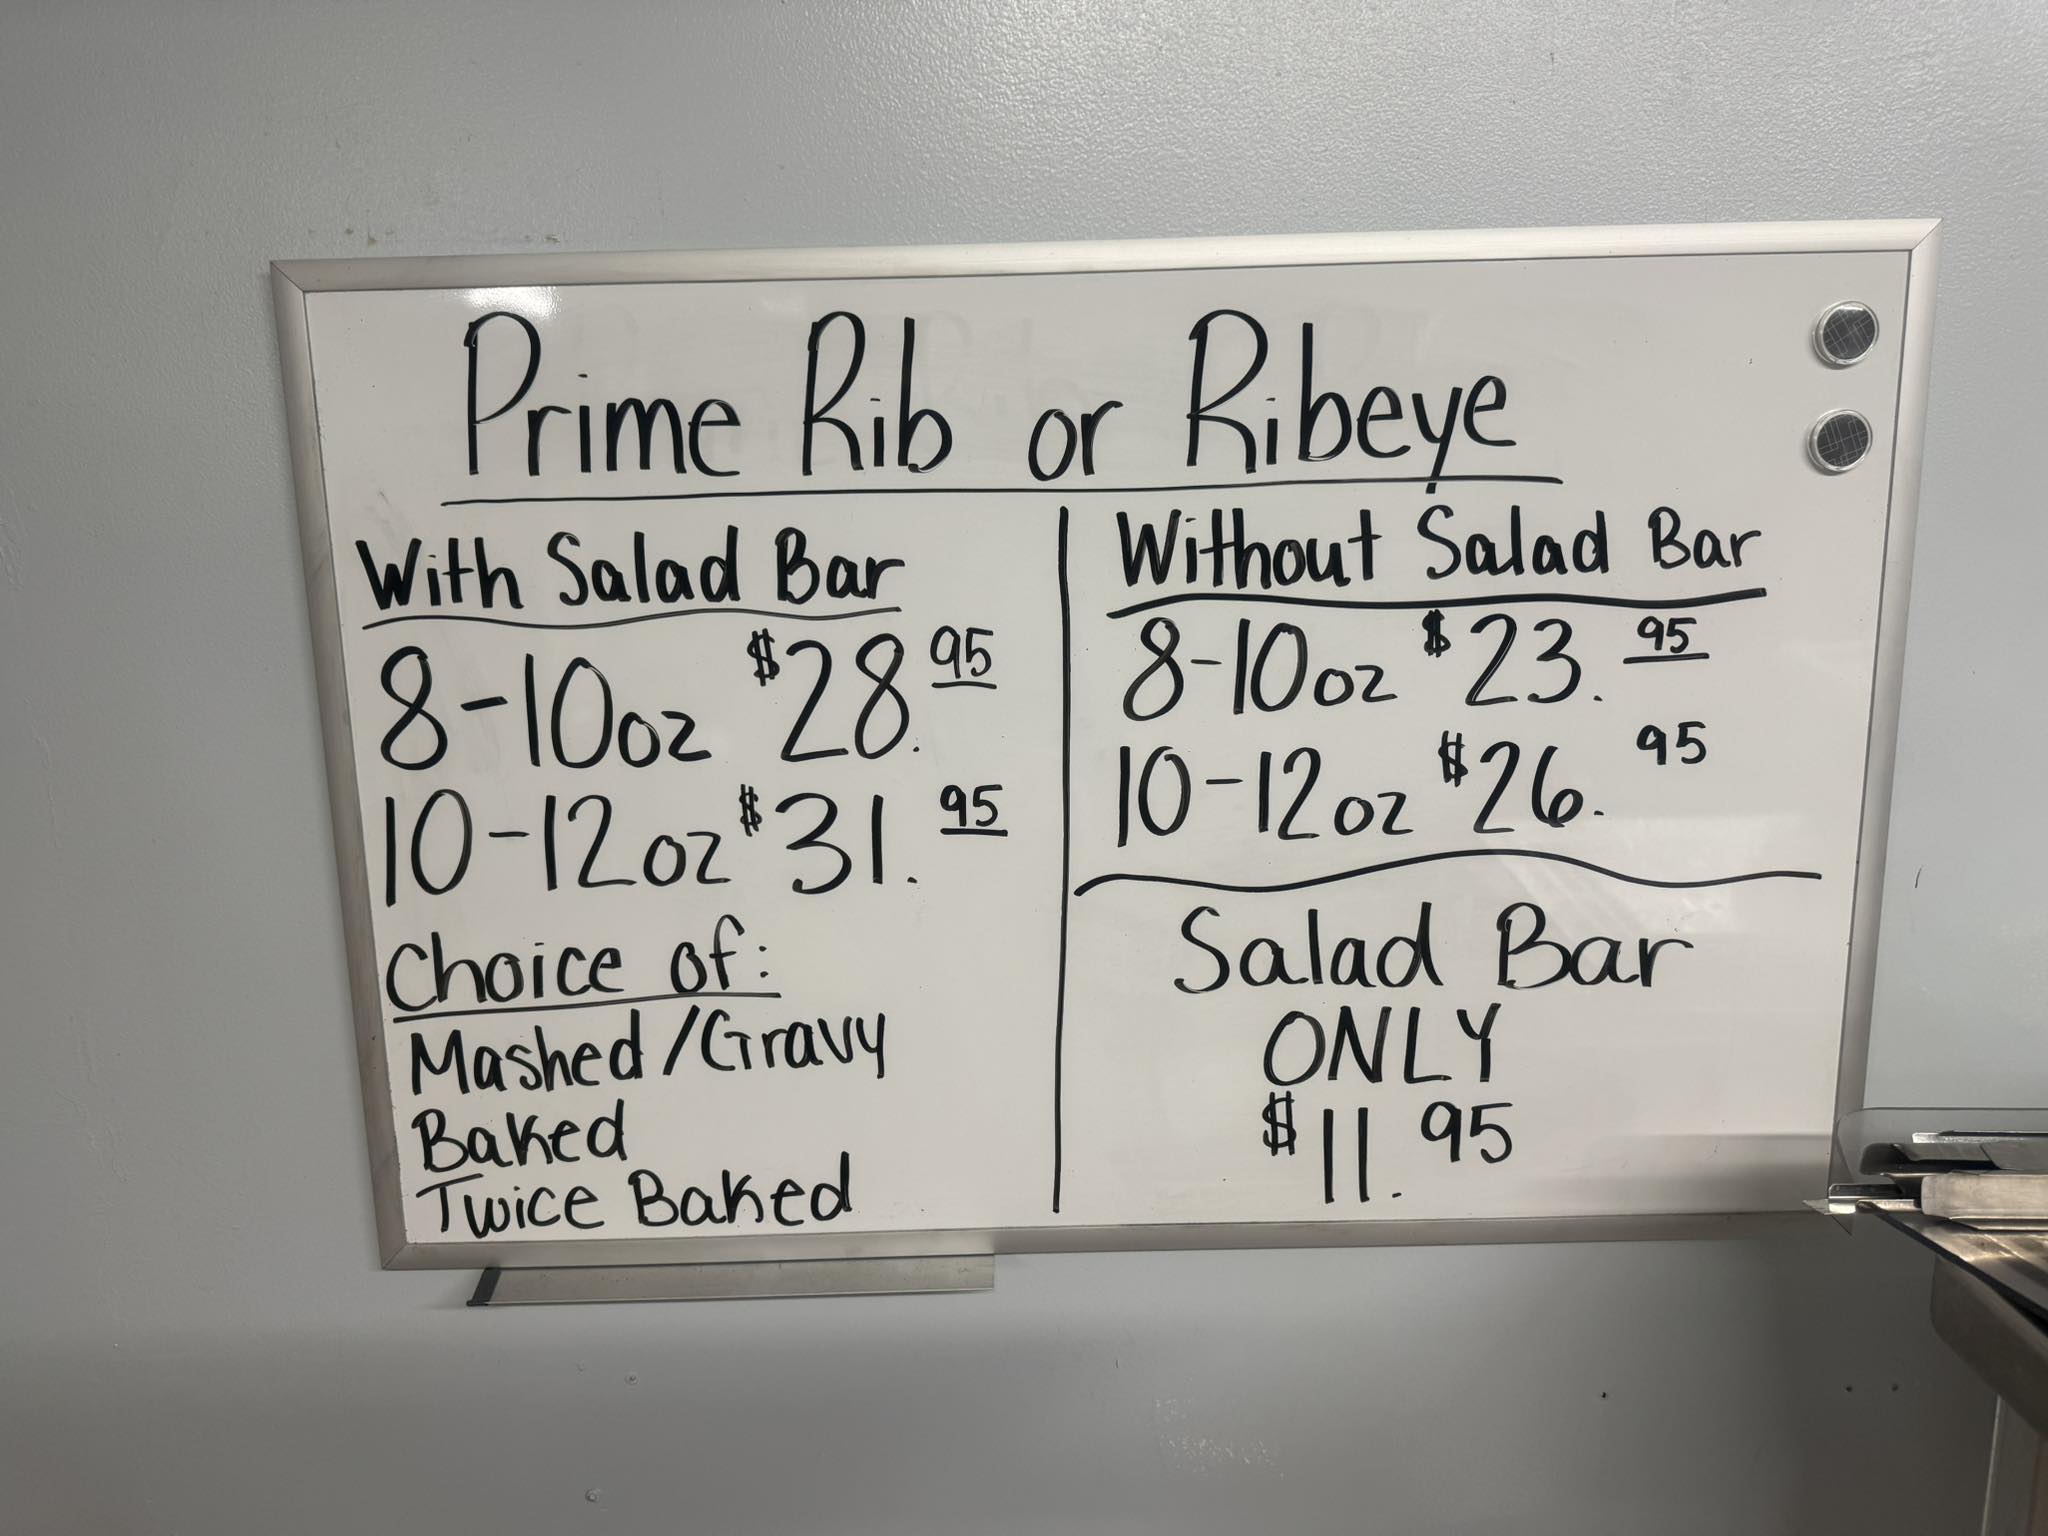 Prime Rib or Ribeye
With Salad Bar
8-10oz $28.95
10-12oz $31.95
Choice of:
Mashed/Gravy
Baked
Twice Baked
Without Salad Bar
8-10oz $23.95
10-12oz $26.95
Salad Bar
ONLY
$11.95